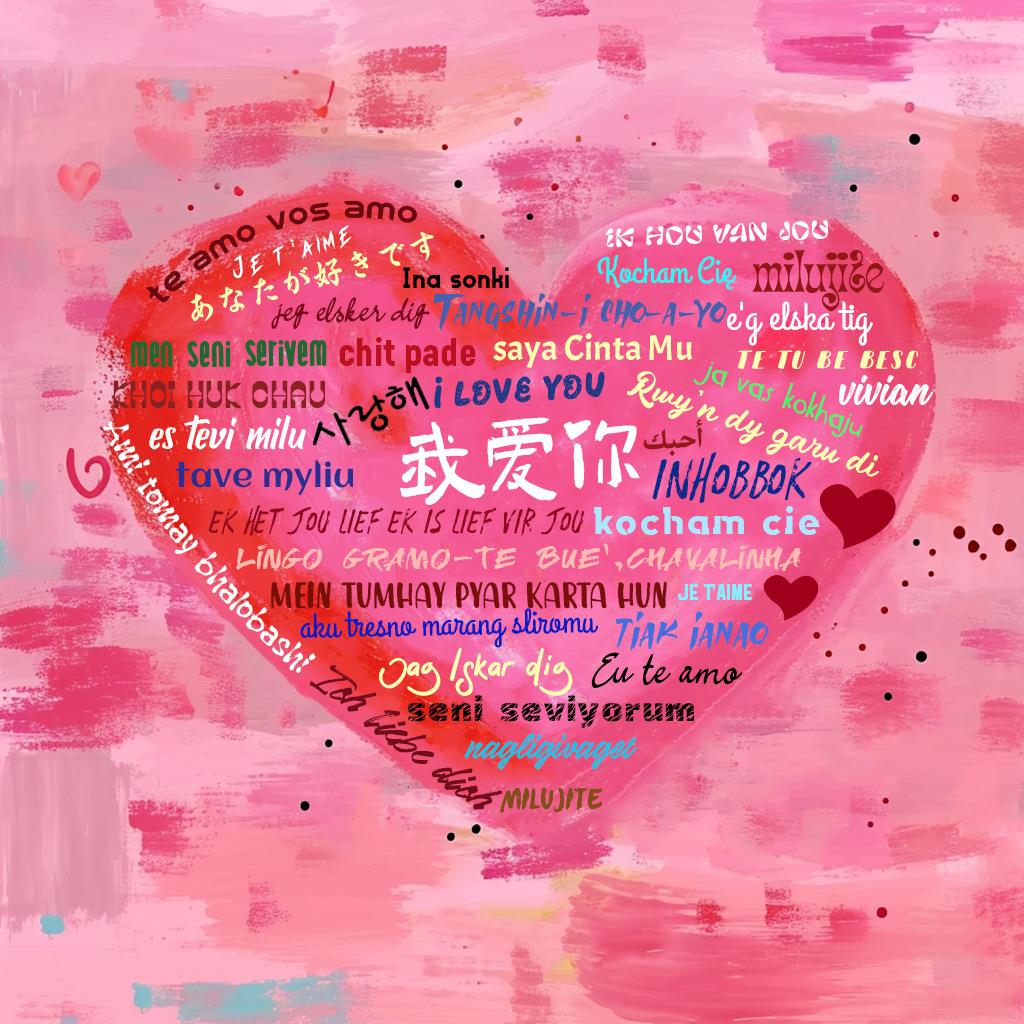 te amo vos amo
JE T'AIME
あなたが好きです
Ina sonki
jeg elsker dig
TANGSHIN-I CHO-A-YO
IK HOU VAN JOU
Kocham Cię
milujite
e'g elska tig
men seni serivem
chit pade
saya Cinta Mu
TE TU BE BESC
KHOI HUK CHAU
사랑해
i LOVE YOU
Rwy'n dy garu di
ja vas kokhaju
vivian
es tevi milu
我爱你
أحبك
tave myliu
INHOBBOK
Ami tomay bhalobashi
EK HET JOU LIEF EK IS LIEF VIR JOU
kocham cie
LINGO GRAMO-TE BUE',CHAVALINHA
MEIN TUMHAY PYAR KARTA HUN
JE T'AIME
aku tresno marang sliromu
TIAK IANAO
Jag Iskar dig
Eu te amo
Ich liebe dich
seni seviyorum
nagligivaget
MILUJITE